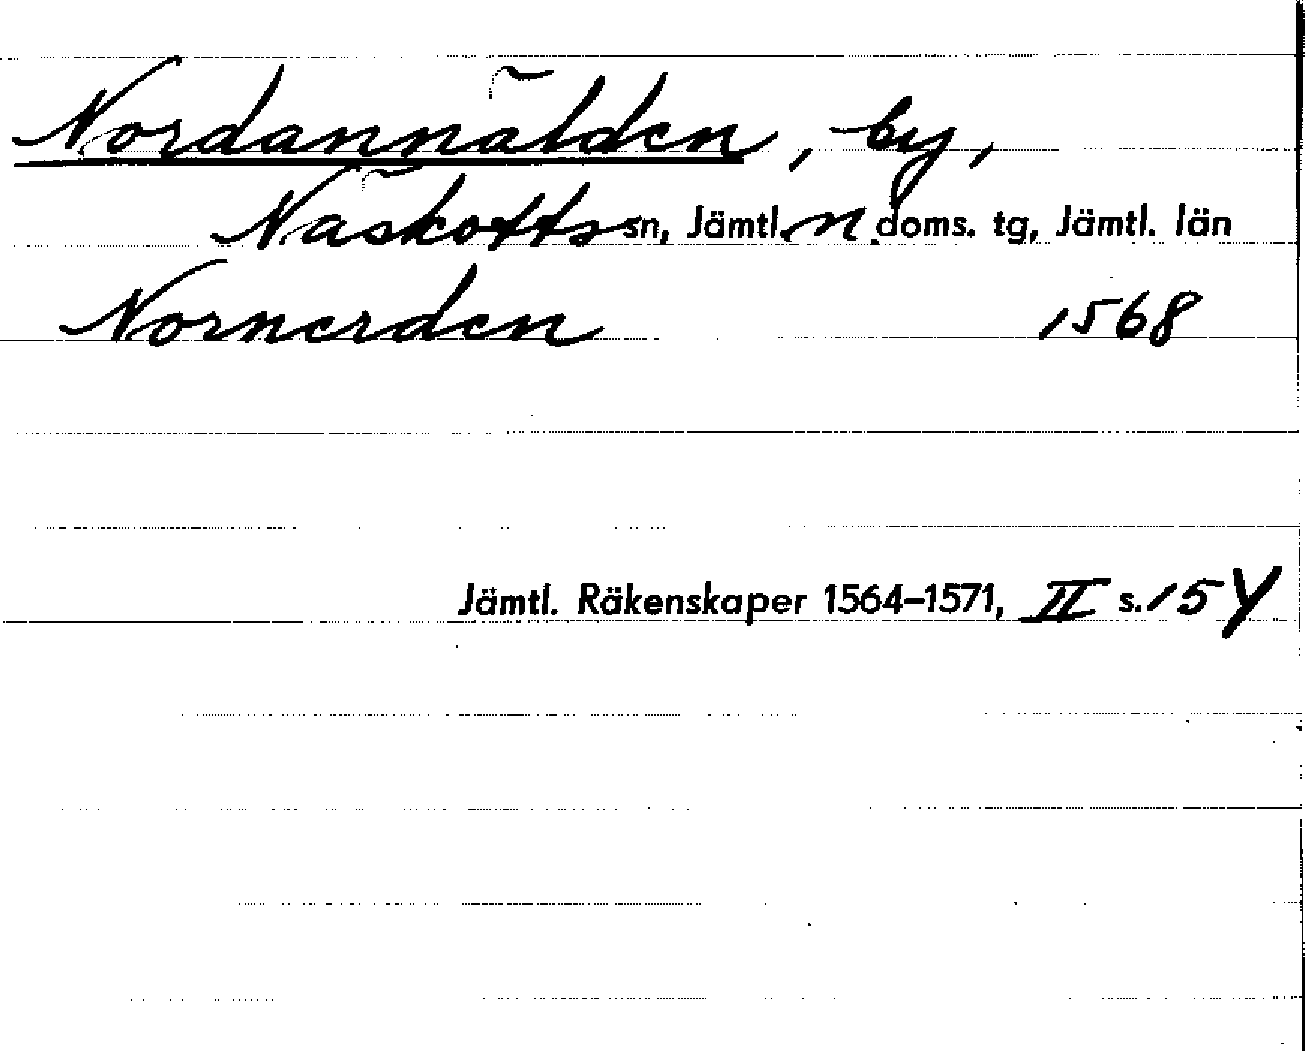 Nordannälden, by,
Näskotts sn, Jämtl. n doms. tg, Jämtl. län
Nornerden 1568
Jämtl. Räkenskaper 1564–1571, II s. 154